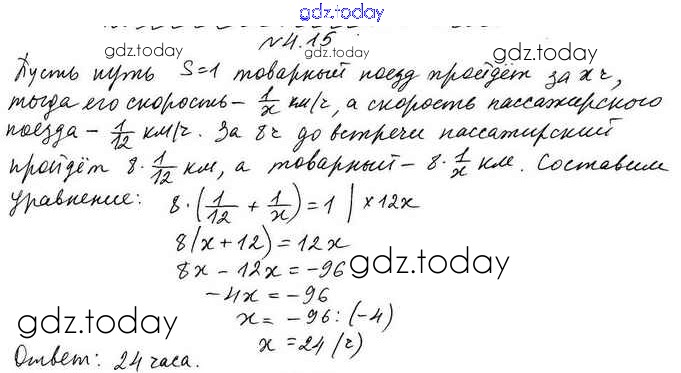 gdz.today
gdz.today №4.15 gdz.today
Пусть путь S=1 товарный поезд пройдёт за x ч,
тогда его скорость – 1/x км/ч, а скорость пассажирского
поезда – 1/12 км/ч. За 8 ч до встречи пассажирский
пройдёт 8 · 1/12 км, а товарный – 8 · 1/x км. Составим
уравнение: 8 · (1/12 + 1/x) = 1 | × 12x
8(x + 12) = 12x
8x – 12x = –96 gdz.today
–4x = –96
gdz.today x = –96 : (–4)
x = 24 (ч)
Ответ: 24 часа. gdz.today